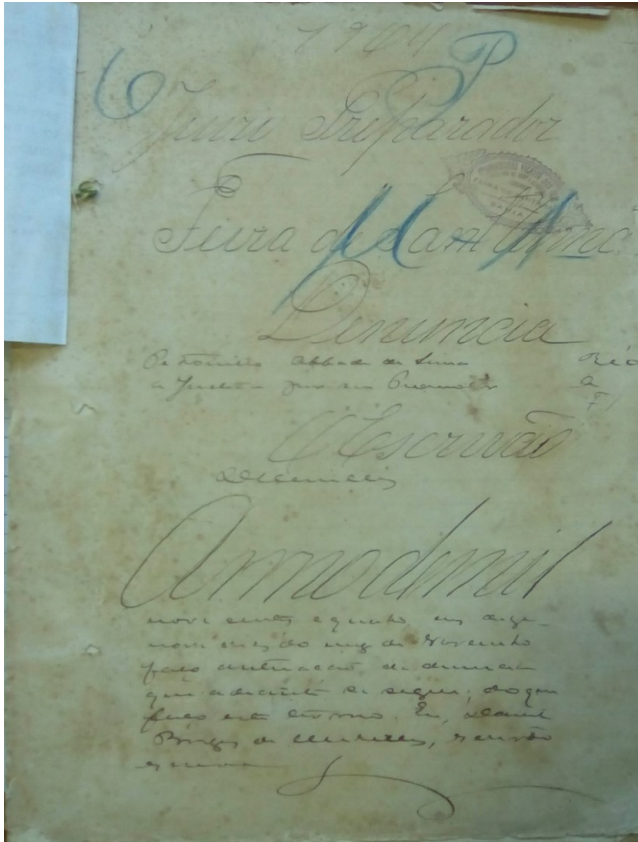 1904
Juizo Preparador
Feira de Sant'Anna
Denuncia
Petronilio Abbade de Lima Réo
a Justiça por seu Promotor A
O Escrivão
Anno de mil
nove centos e quatro, aos deze-
nove dias do mez de Novembro
faço autuação da denuncia
que adiante se segue; do que
faço este termo. Eu,
Borges de Meirelles, escrivão
escrevi